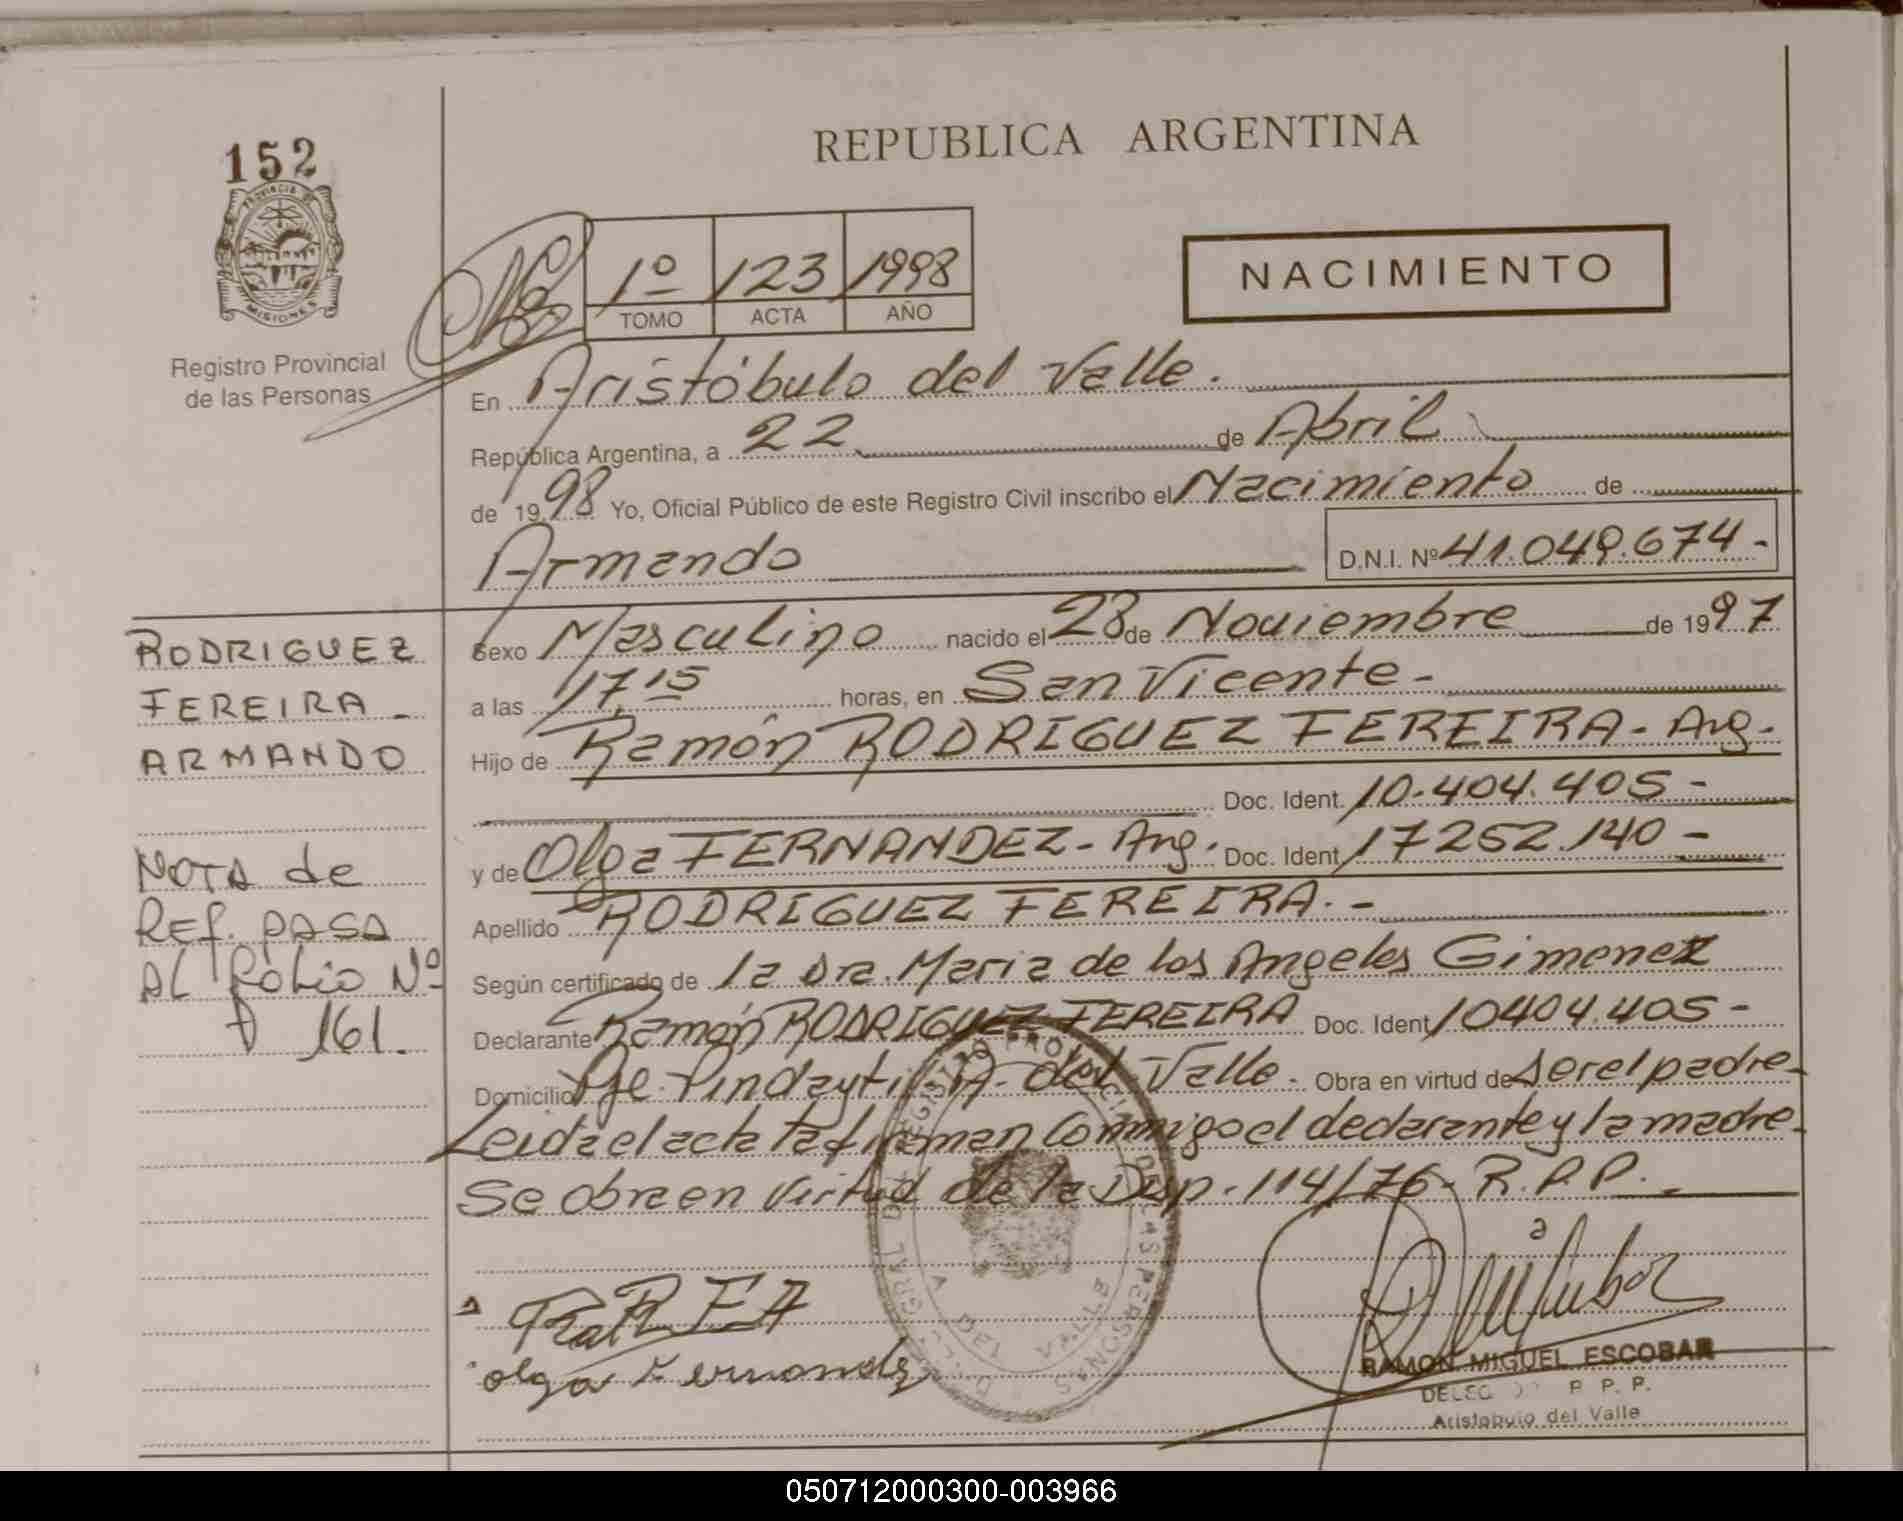 152
PROVINCIA DE
MISIONES
Registro Provincial
de las Personas
REPUBLICA ARGENTINA
1º 123 1998
TOMO ACTA AÑO
NACIMIENTO
En Aristóbulo del Valle.
República Argentina, a 22 de Abril
de 1998 Yo, Oficial Público de este Registro Civil inscribo el Nacimiento de
Armando D.N.I. Nº 41.049.674-
RODRIGUEZ
FEREIRA -
ARMANDO
NOTA de
REF. PASA
AL FOLIO Nº
161.
Sexo Masculino nacido el 28 de Noviembre de 1997
a las 17,15 horas, en San Vicente -
Hijo de Ramón RODRIGUEZ FEREIRA - Arg.
Doc. Ident. 10.404.405 -
y de Olga FERNANDEZ - Arg. Doc. Ident 17252.140 -
Apellido RODRIGUEZ FEREIRA. -
Según certificado de la Dra. Maria de los Angeles Gimenez
Declarante Ramón RODRIGUEZ FEREIRA Doc. Ident 10404.405 -
Domicilio Pje. Pindayti A. del Valle - Obra en virtud de ser el padre -
Leida el acta la firman conmigo el declarante y la madre -
Se obra en virtud de la Disp. 114/76 - R.P.P. -
Olga Fernandez
RAMON MIGUEL ESCOBAR
R. P. P.
Aristobulo del Valle
050712000300-003966